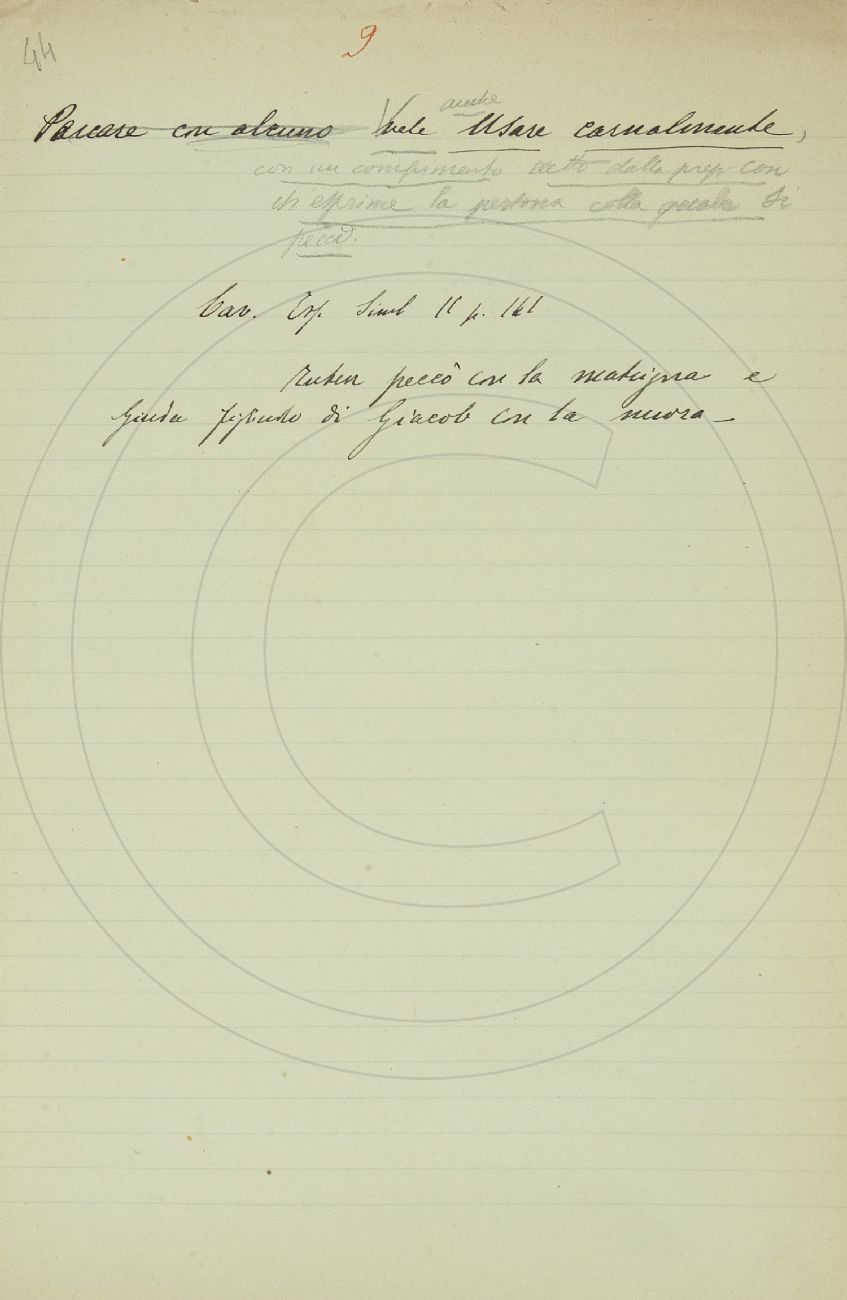 44
9
anche
Peccare con alcuno Vale Usare carnalmente,
con un compimento retto dalla prep. con
ch'esprime la persona colla quale si
pecca.
Cav. Esp. Simb II p. 161
Ruben peccò con la matrigna e
Giuda figliuolo di Giacob con la nuora —